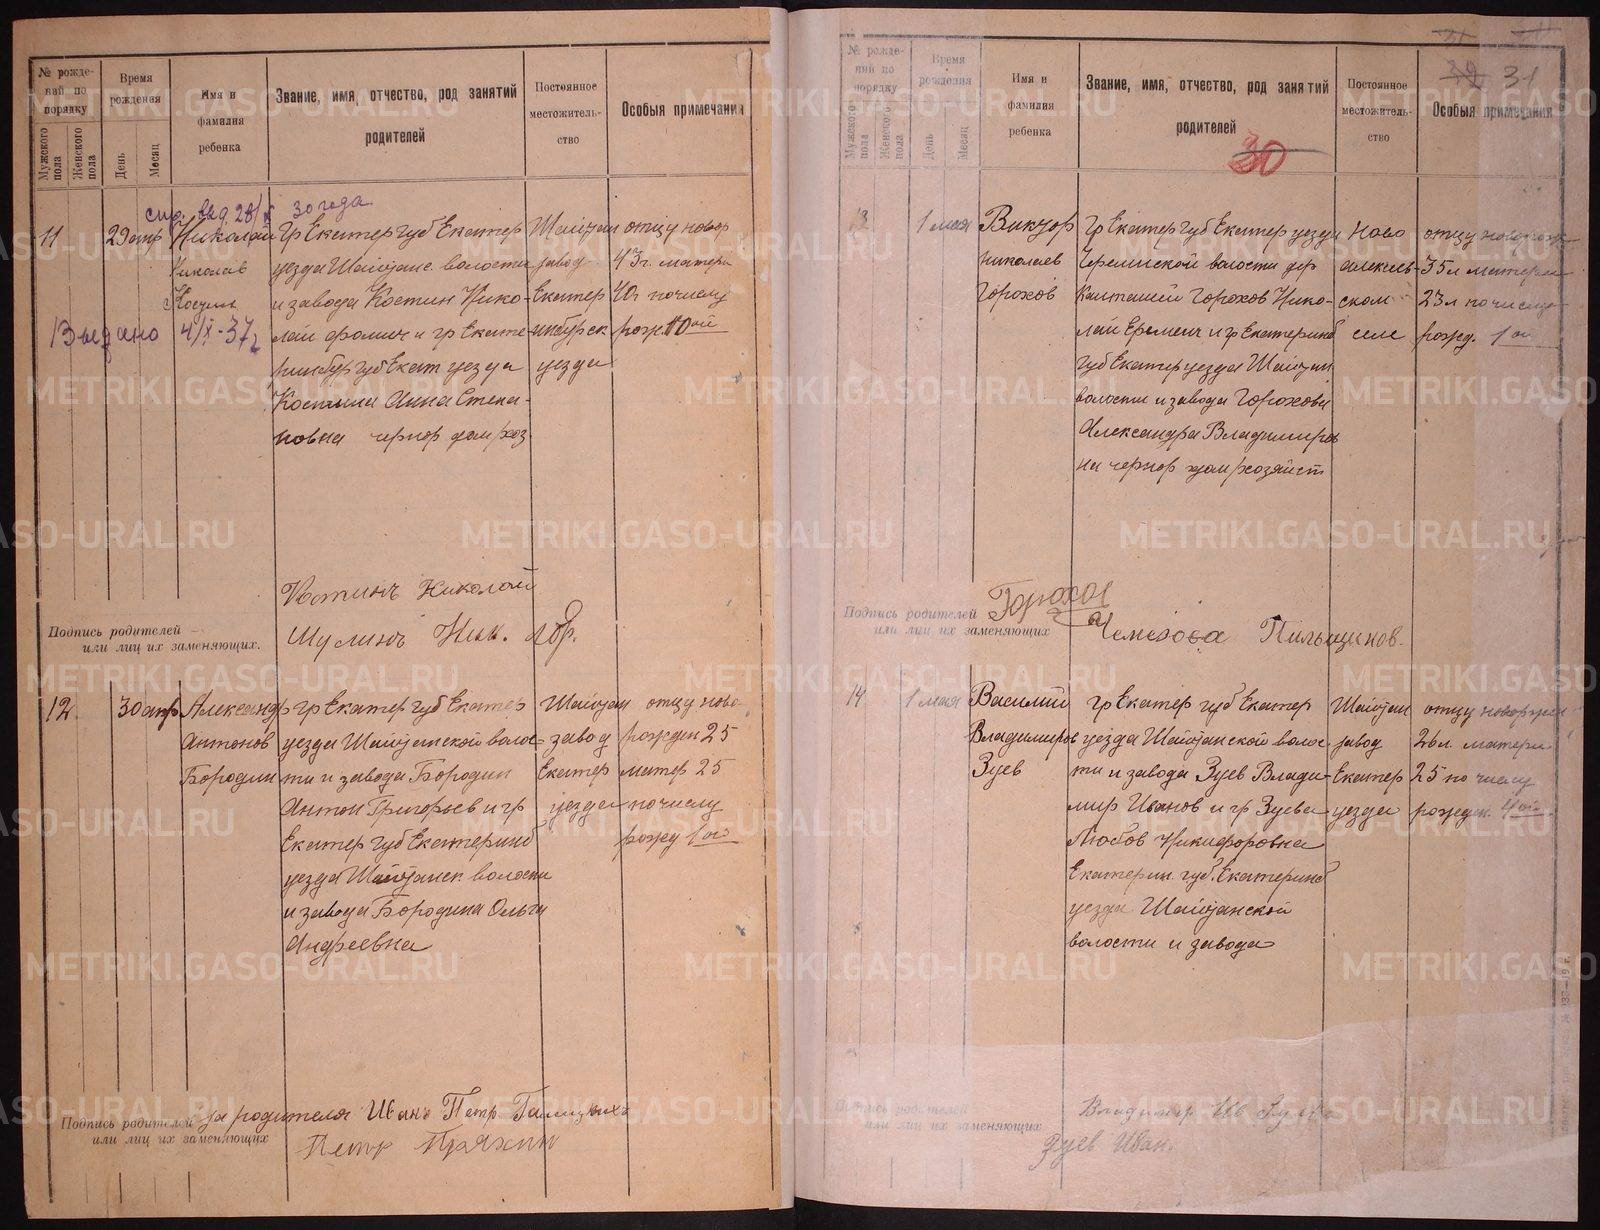 № рожде-
ний по
порядку
Мужского
пола
Женского
пола
Время
рождения
День
Месяц
Имя и
фамилия
ребенка
Звание, имя, отчество, род занятий
родителей
Постоянное
местожитель-
ство
Особыя примечания
30 года
11
29 апр
Николай
Николаев
Костин
Выдано 4/X-37 г
гр Екатер губ Екатер
уезда Шайтанс. волости
и завода Костин Нико-
лай и гр Екате-
ринбур губ Екат уезда
Костина Анна Степа-
новна чернор дом хоз.
Шайтан
завод
Екатер
инбурск
уезда
отцу новор
43 г. матери
40 г по числу
рожд. 10 ой
Подпись родителей
или лиц их заменяющих.
Костинъ Николай
Шулинъ Ник.
12
30 апр
Александр
Антонов
Бородин
гр Екатер губ Екатер
уезда Шайтанской волос-
ти и завода Бородин
Антон Григорьев и гр
Екатер губ Екатеринб
уезда Шайтанск волости
и завода Бородина Ольга
Андреевна
Шайтан
завод
Екатер
уезда
отцу ново-
рожден 25
матер 25
по числу
рожд 1 ой
Подпись родителей
или лиц их заменяющих
за родителя Иванъ Петр Галицкихъ
Петр Пряхин
31
30
№ рожде-
ний по
порядку
Мужского
пола
Женского
пола
Время
рождения
День
Месяц
Имя и
фамилия
ребенка
Звание, имя, отчество, род занятий
родителей
Постоянное
местожитель-
ство
Особыя примечания
13
1 мая
Виктор
Николаев
Горохов
гр Екатер губ Екатер уезда
волости дер
Горохов Нико-
лай Еремеич и гр Екатеринб
губ Екатер уезда Шайтан
волости и завода Горохова
Александра Владимиров
на чернор дом хозяйст
Ново
алексеев-
ском
селе
отцу новорож
35 л матери
23 л по числу
рожд. 1 ой
Подпись родителей
или лиц их заменяющих
Горохов
Чемезова
14
1 мая
Василий
Владимиров
Зуев
гр Екатер губ Екатер
уезда Шайтанской волос-
ти и завода Зуев Влади-
мир Иванов и гр Зуева
Любов Никифоровна
Екатерин. губ. Екатеринб
уезда Шайтанской
волости и завода
Шайтан
завод
Екатер
уезда
отцу новорожд
26 л. матери
25 по числу
рожден. 4 ой
Подпись родителей
или лиц их заменяющих
Владимир Ив Зуев
Зуев Иван.
METRIKI.GASO-URAL.RU